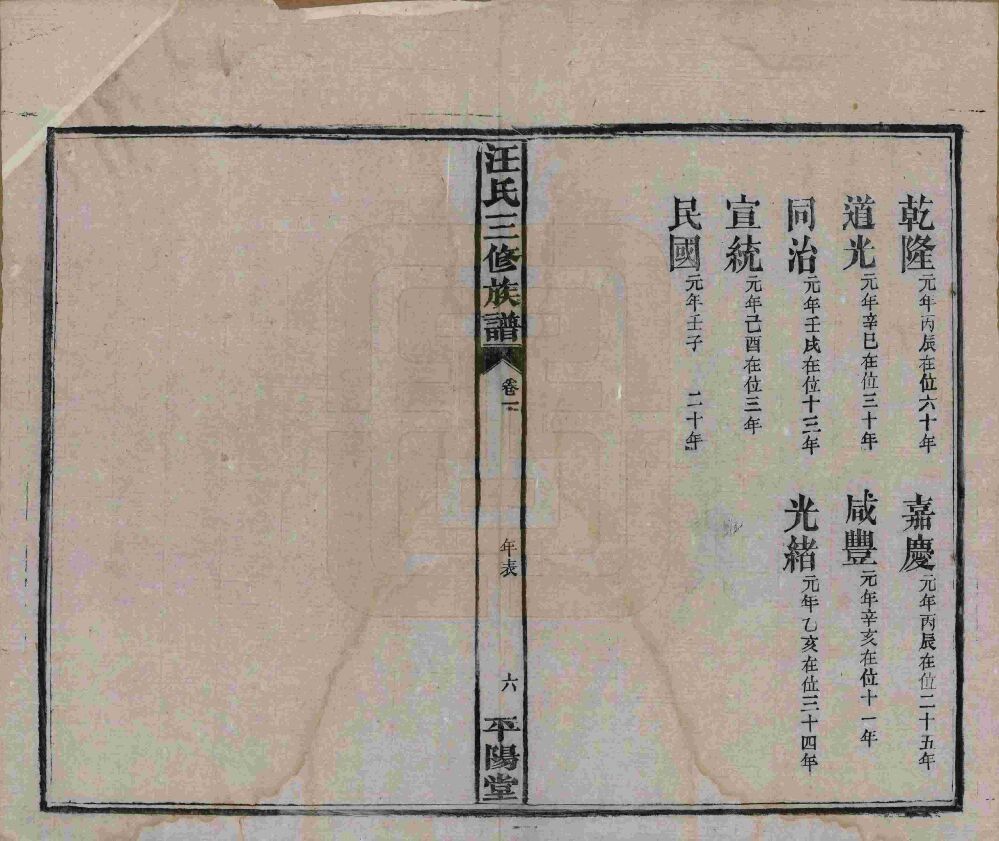 乾隆元年丙辰在位六十年
嘉慶元年丙辰在位二十五年
道光元年辛巳在位三十年
咸豐元年辛亥在位十一年
同治元年壬戌在位十三年
光緒元年乙亥在位三十四年
宣統元年己酉在位三年
民國元年壬子 二十年
汪氏三修族譜 卷一 年表 六 平陽堂